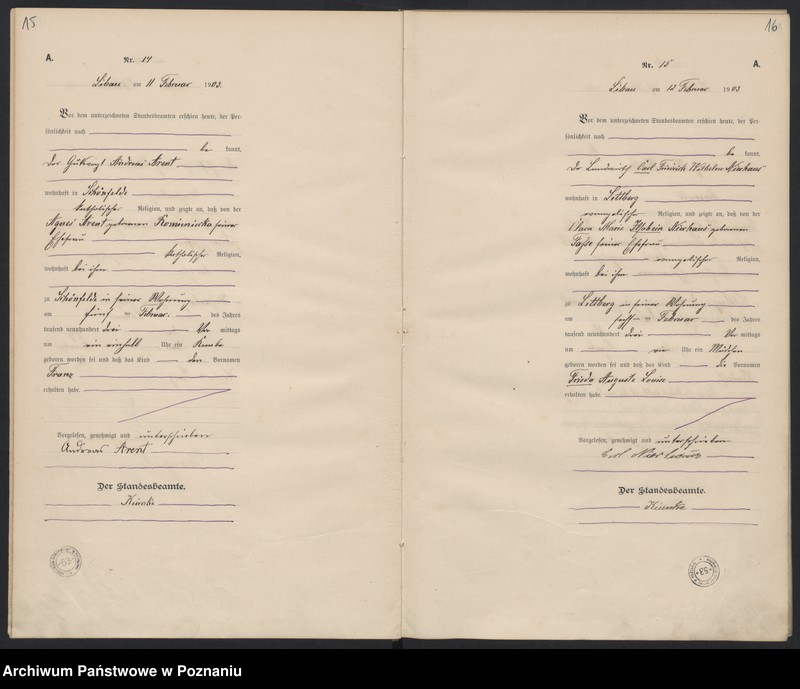 15
A.
Nr. 14
Libau am 11 Februar 1903.
Vor dem unterzeichneten Standesbeamten erschien heute, der Per-
sönlichkeit nach
be kannt,
der Gutsvogt Andreas Arent
wohnhaft in Schönfelde
katholischer Religion, und zeigte an, daß von der
Agnes Arent geborenen seiner
Ehefrau
katholischer Religion,
wohnhaft bei ihm
zu Schönfelde in seiner Wohnung
am fünf ten Februar des Jahres
tausend neunhundert drei Vor mittags
um ein einhalb Uhr ein Knabe
geboren worden sei und daß das Kind den Vornamen
Franz
erhalten habe.
Vorgelesen, genehmigt und unterschrieben
Andreas Arent
Der Standesbeamte.
16
Nr. 15
A.
Libau am 12 Februar 1903
Vor dem unterzeichneten Standesbeamten erschien heute, der Per-
sönlichkeit nach
be kannt,
Der Landwirth Carl Friedrich Wilhelm Nierhaus
wohnhaft in Lettberg
evangelischer Religion, und zeigte an, daß von der
Clara Marie Nierhaus geborenen
seiner Ehefrau
evangelischer Religion,
wohnhaft bei ihm
zu Lettberg in seiner Wohnung
am sechs ten Februar des Jahres
tausend neunhundert drei Vor mittags
um vier Uhr ein Mädchen
geboren worden sei und daß das Kind die Vornamen
Frieda Auguste Louise
erhalten habe.
Vorgelesen, genehmigt und unterschrieben
Carl Nierhaus
Der Standesbeamte.
Archiwum Państwowe w Poznaniu